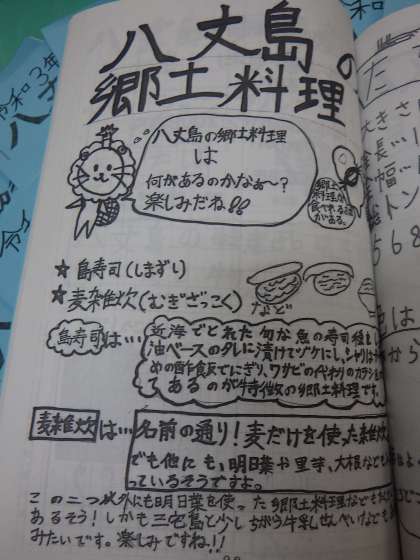 八丈島の
郷土料理
八丈島の郷土料理
は
何があるのかなぁ~?
楽しみだね!!
郷土
料理が
食べれる
がある。
★島寿司(しまずし)
★麦雑炊(むぎざっこく)
など
島寿司は…
近海でとれた旬な魚の寿司種を
油ベースのタレに漬けてヅケにし、シャリは
めの酢飯でにぎり、ワサビの代わりのカラシ
てあるのが特徴の郷土料理です。
麦雑炊は…
名前の通り!麦だけを使った雑炊
でも他にも、明日葉や里芋、大根なども
っているそうですよ。
この二つ以外にも明日葉を使った郷土料理なども
あるそう!しかも三宅島と少しちがう牛乳せんべいなども
みたいです。楽しみですね!!
令和3年
八丈
令和
た
大きさ
食長
幅
トン
568
は